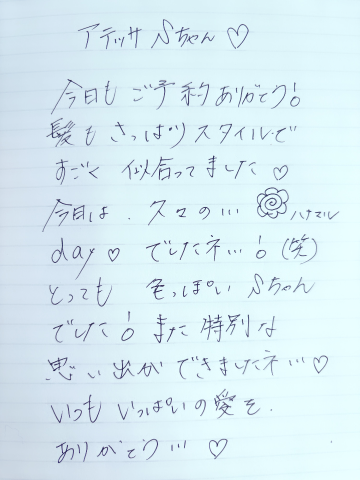 アテッサ Sちゃん ♡
今日も ご予約ありがとう!
髪も さっぱりスタイルで
すごく 似合ってました ♡
今日は、久々の… ハナマル
day♡ でしたネ…! (笑)
とっても 色っぽい Sちゃん
でした! また 特別な
思い出が できましたネ…♡
いつも いっぱいの愛を、
ありがとう… ♡